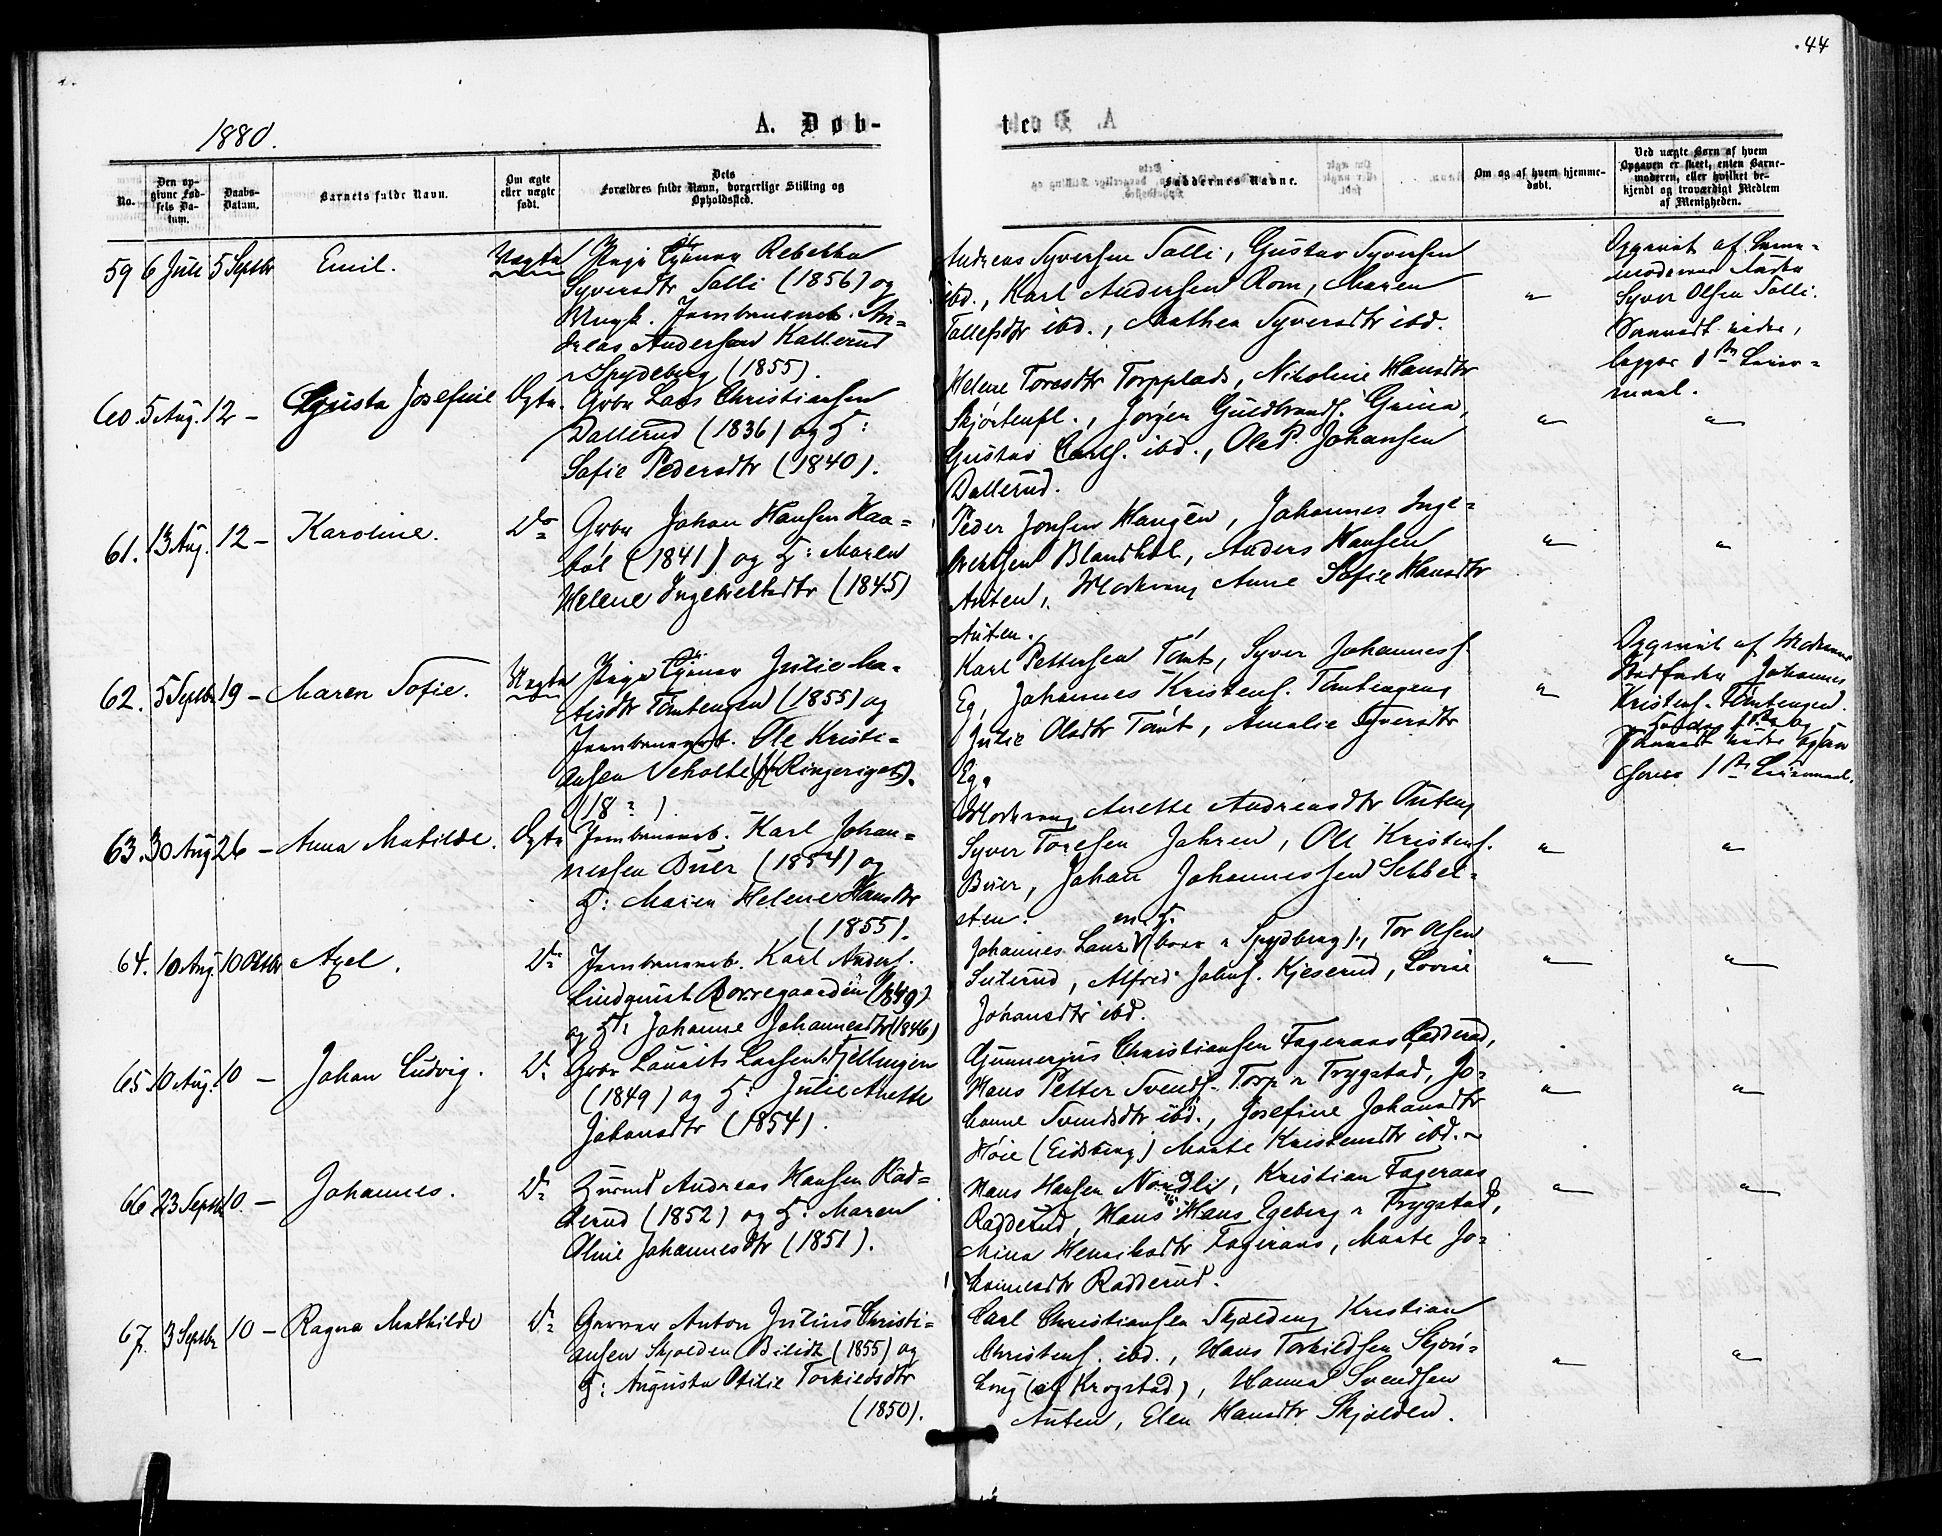 44
1880.
A. Døb-
te.
No.
Den op-
givne Fød-
sels Da-
tum.
Daabs-
Datum.
Barnets fulde Navn.
Om ægte
eller uægte
født.
Dets
Forældres fulde Navn, borgerlige Stilling og
Opholdssted.
Faddernes Navne.
Om og af hvem hjemme-
døbt.
Ved uægte Børn af hvem
Opgaven er skeet, enten Barne-
moderen, eller hvilket be-
kjendt og troværdigt Medlem
af Menigheden.
59 6 Juli 5 Septbr Emil. Uægte Pige Rebekka
Syversdtr Salli (1856) og
Ungk. Jernbanearb. An-
dreas Andersen Kallerud
Spydeberg (1855).
Andreas Syversen Salli, Gustav Syversen
ibd., Karl Andersen Rom, Maren
Tollefsdtr ibd., Mathea Syversdtr ibd.
"
Opgivet af Barne-
moderens Fader
Syver Olsen Salli.
1ste Leier-
maal.
60. 5 Aug. 12 - Gusta Josefine Ægte. Gbr Lars Christiansen
Dallerud (1836) og H:
Sofie Pedersdtr (1840).
Helene Toresdtr Torpplads, Nikoline Hansdtr
Skjørtenpl., Jørgen Guldbrands. Grina,
Gustav Carls. ibd., Ole P. Johansen
Dallerud.
" "
61. 13 Aug. 12 - Karoline. Do Gbr Johan Hansen Kaa-
bøl (1841) og H: Maren
Helene Ingebretsdtr (1845)
Peder Jonsen Haugen, Johannes Inge-
bretsen Blandkol, Anders Hansen
Auten, Anne Sofie Hansdtr
Auten.
" "
62. 5 Septbr 19 - Maren Sofie. Uægte Pige Julie Ma-
Tomtengen (1855) og
Jernbanearb. Ole Kristi-
ansen (Ringeriget).
(18 ? )
Karl Pettersen Tomt, Syver Johanness.
Eg, Johannes Kristens. Tomtengen
Julie Olsdtr Tomt, Amalie Syversdtr
Eg.
"
Opgivet af Moderens
Johannes
Kristens. Tomtengen.
1ste Leiermaal.
63. 30 Aug 26 - Anna Matilde. Ægte Jernbanearb. Karl Johan-
nessen Buer (1854) og
H: Maren Helene Hansdtr
(1855).
Anette Andreasdtr Auten,
Syver Toresen Jahren, Ole Kristens.
Buer, Johan Johannessen Sebbel-
sten.
" "
64. 10 Aug. 10 Oktbr Axel. Do Jernbanearb. Karl Anders.
Lindquist Borregaarden (1849)
og H: Johanne Johannesdtr (1846)
m. H.
Johannes (boer i Spydberg), Tor Olsen
Alfred Johns. Kjeserud, Lovise
Johansdtr ibd.
" "
65 10 Aug. 10 - Johan Ludvig. Do Gbr Lauritz Larsen Fjellengen
(1849) og H: Julie Anette
Johansdtr (1854).
Gunnerius Christiansen Fageraas Radderud,
Hans Petter Svends. Torp i Trygstad, Jo-
hanne Svendsdtr ibd., Josefine Johansdtr
Høie (Eidsberg) Marte Kristensdtr ibd.
" "
66 23 Septbr 10. - Johannes. Do Husmd Andreas Hansen Rad-
derud (1852) og H: Maren
Oline Johannesdtr (1851).
Hans Hansen Nordli, Kristian Fageraas
Radderud, Hans Hans. Egeberg i Trygstad,
Mina Henriksdtr Fageraas, Marte Jo-
hannesdtr Radderud.
" "
67. 3 Septbr 10 - Ragna Mathilde Do Garver Anton Julius Christi-
ansen Skjolden (1855) og
H: Augusta Otilie Torkildsdtr
(1850).
Carl Christiansen Skjolden, Kristian
Christens. ibd., Hans Torkildsen Skjøn-
haug (af Krogstad), Hanna Svendsen
Auten, Elen Hansdtr Skjolden.
" "